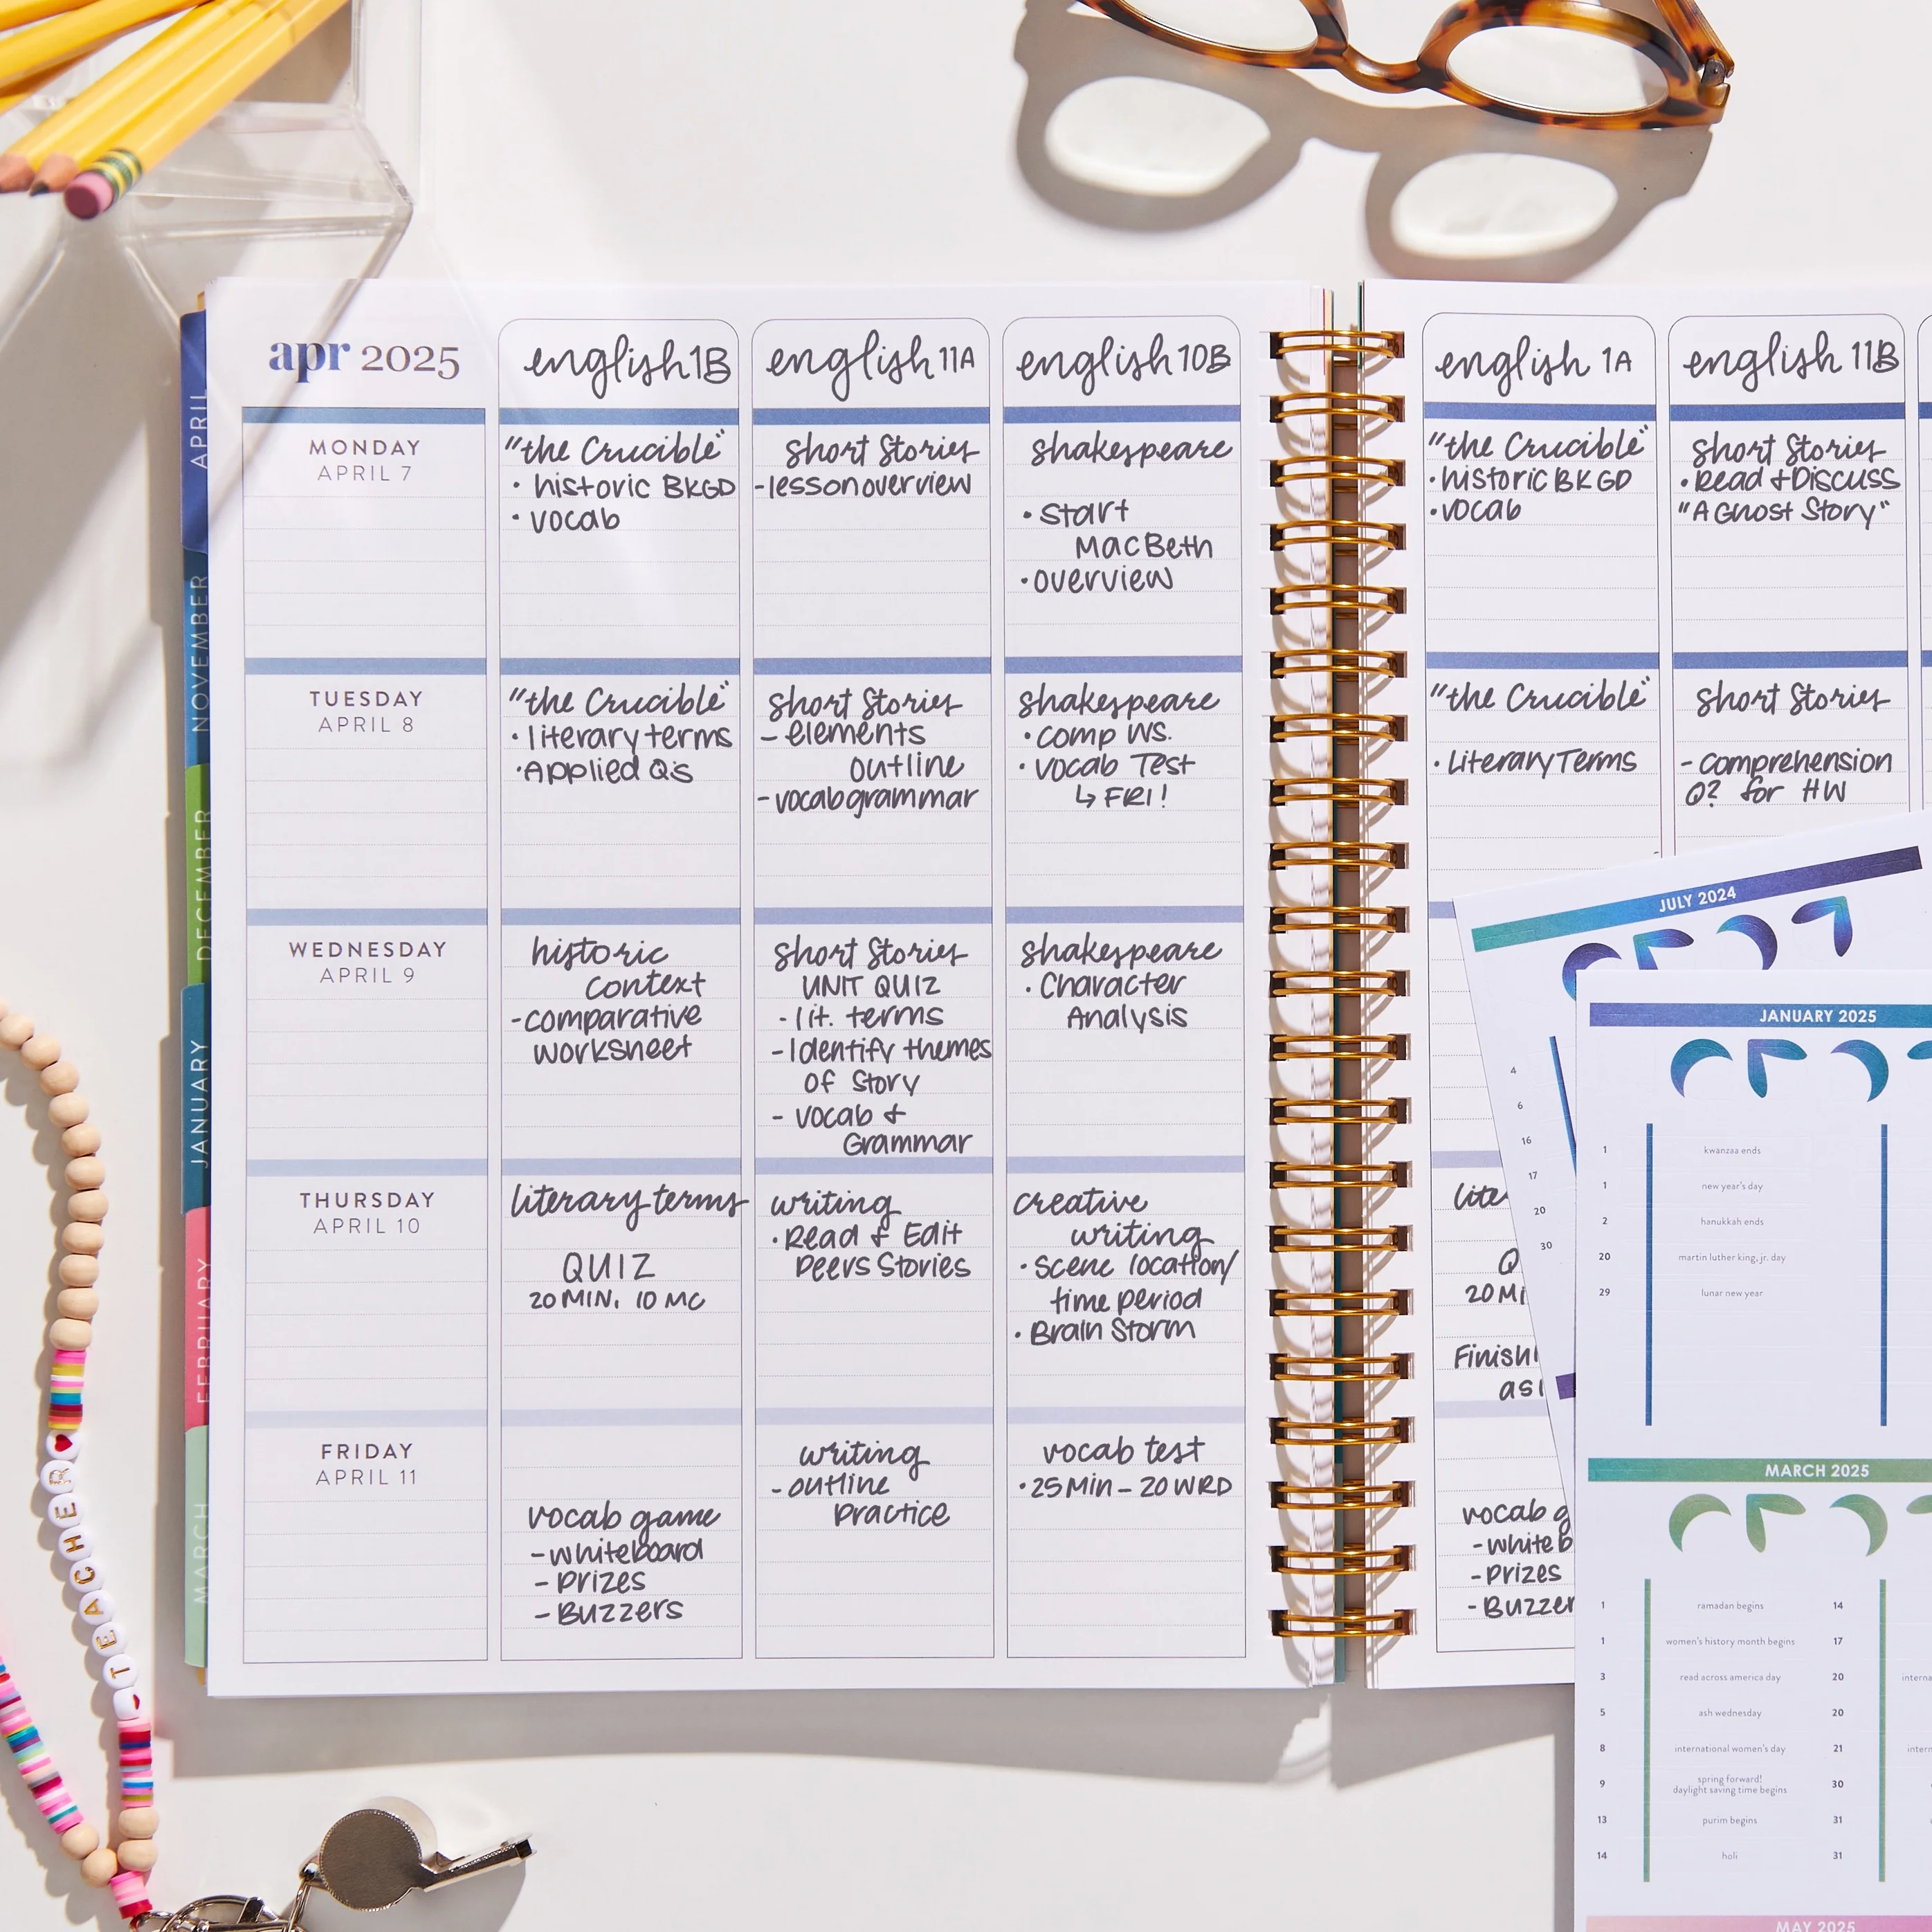 apr 2025
english 1B
english 11A
english 10B
MONDAY
APRIL 7
"the Crucible"
• historic BKGD
• vocab
short Stories
- lesson overview
shakespeare
• start
MacBeth
• overview
TUESDAY
APRIL 8
"the Crucible"
• literary terms
• Applied Q's
short Stories
- elements
outline
- vocab grammar
shakespeare
• comp WS.
• vocab Test
↳ FRI!
WEDNESDAY
APRIL 9
historic
context
- comparative
worksheet
short Stories
UNIT QUIZ
- lit. terms
- Identify themes
of Story
- vocab &
Grammar
shakespeare
• Character
Analysis
THURSDAY
APRIL 10
literary terms
QUIZ
20 MIN. 10 MC
writing
• Read & Edit
Peers Stories
creative
writing
• Scene location/
time period
• Brain Storm
FRIDAY
APRIL 11
vocab game
- whiteboard
- Prizes
- Buzzers
writing
- outline
Practice
vocab test
• 25 Min - 20 WRD
english 1A
english 11B
"the Crucible"
• historic BKGD
• vocab
short Stories
• Read & Discuss
"A Ghost Story"
"the Crucible"
• Literary Terms
short Stories
- comprehension
Q? for HW
20 Mi
vocab g
- white b
- Prizes
- Buzzer
APRIL
NOVEMBER
DECEMBER
JANUARY
FEBRUARY
MARCH
JULY 2024
4
6
16
17
20
30
JANUARY 2025
1 kwanzaa ends
1 new year's day
2 hanukkah ends
20 martin luther king, jr. day
29 lunar new year
MARCH 2025
1 ramadan begins 14
1 women's history month begins 17
3 read across america day 20
5 ash wednesday 20
8 international women's day 21
9 spring forward!
daylight saving time begins 30
13 purim begins 31
14 holi 31
MAY 2025
TEACHER